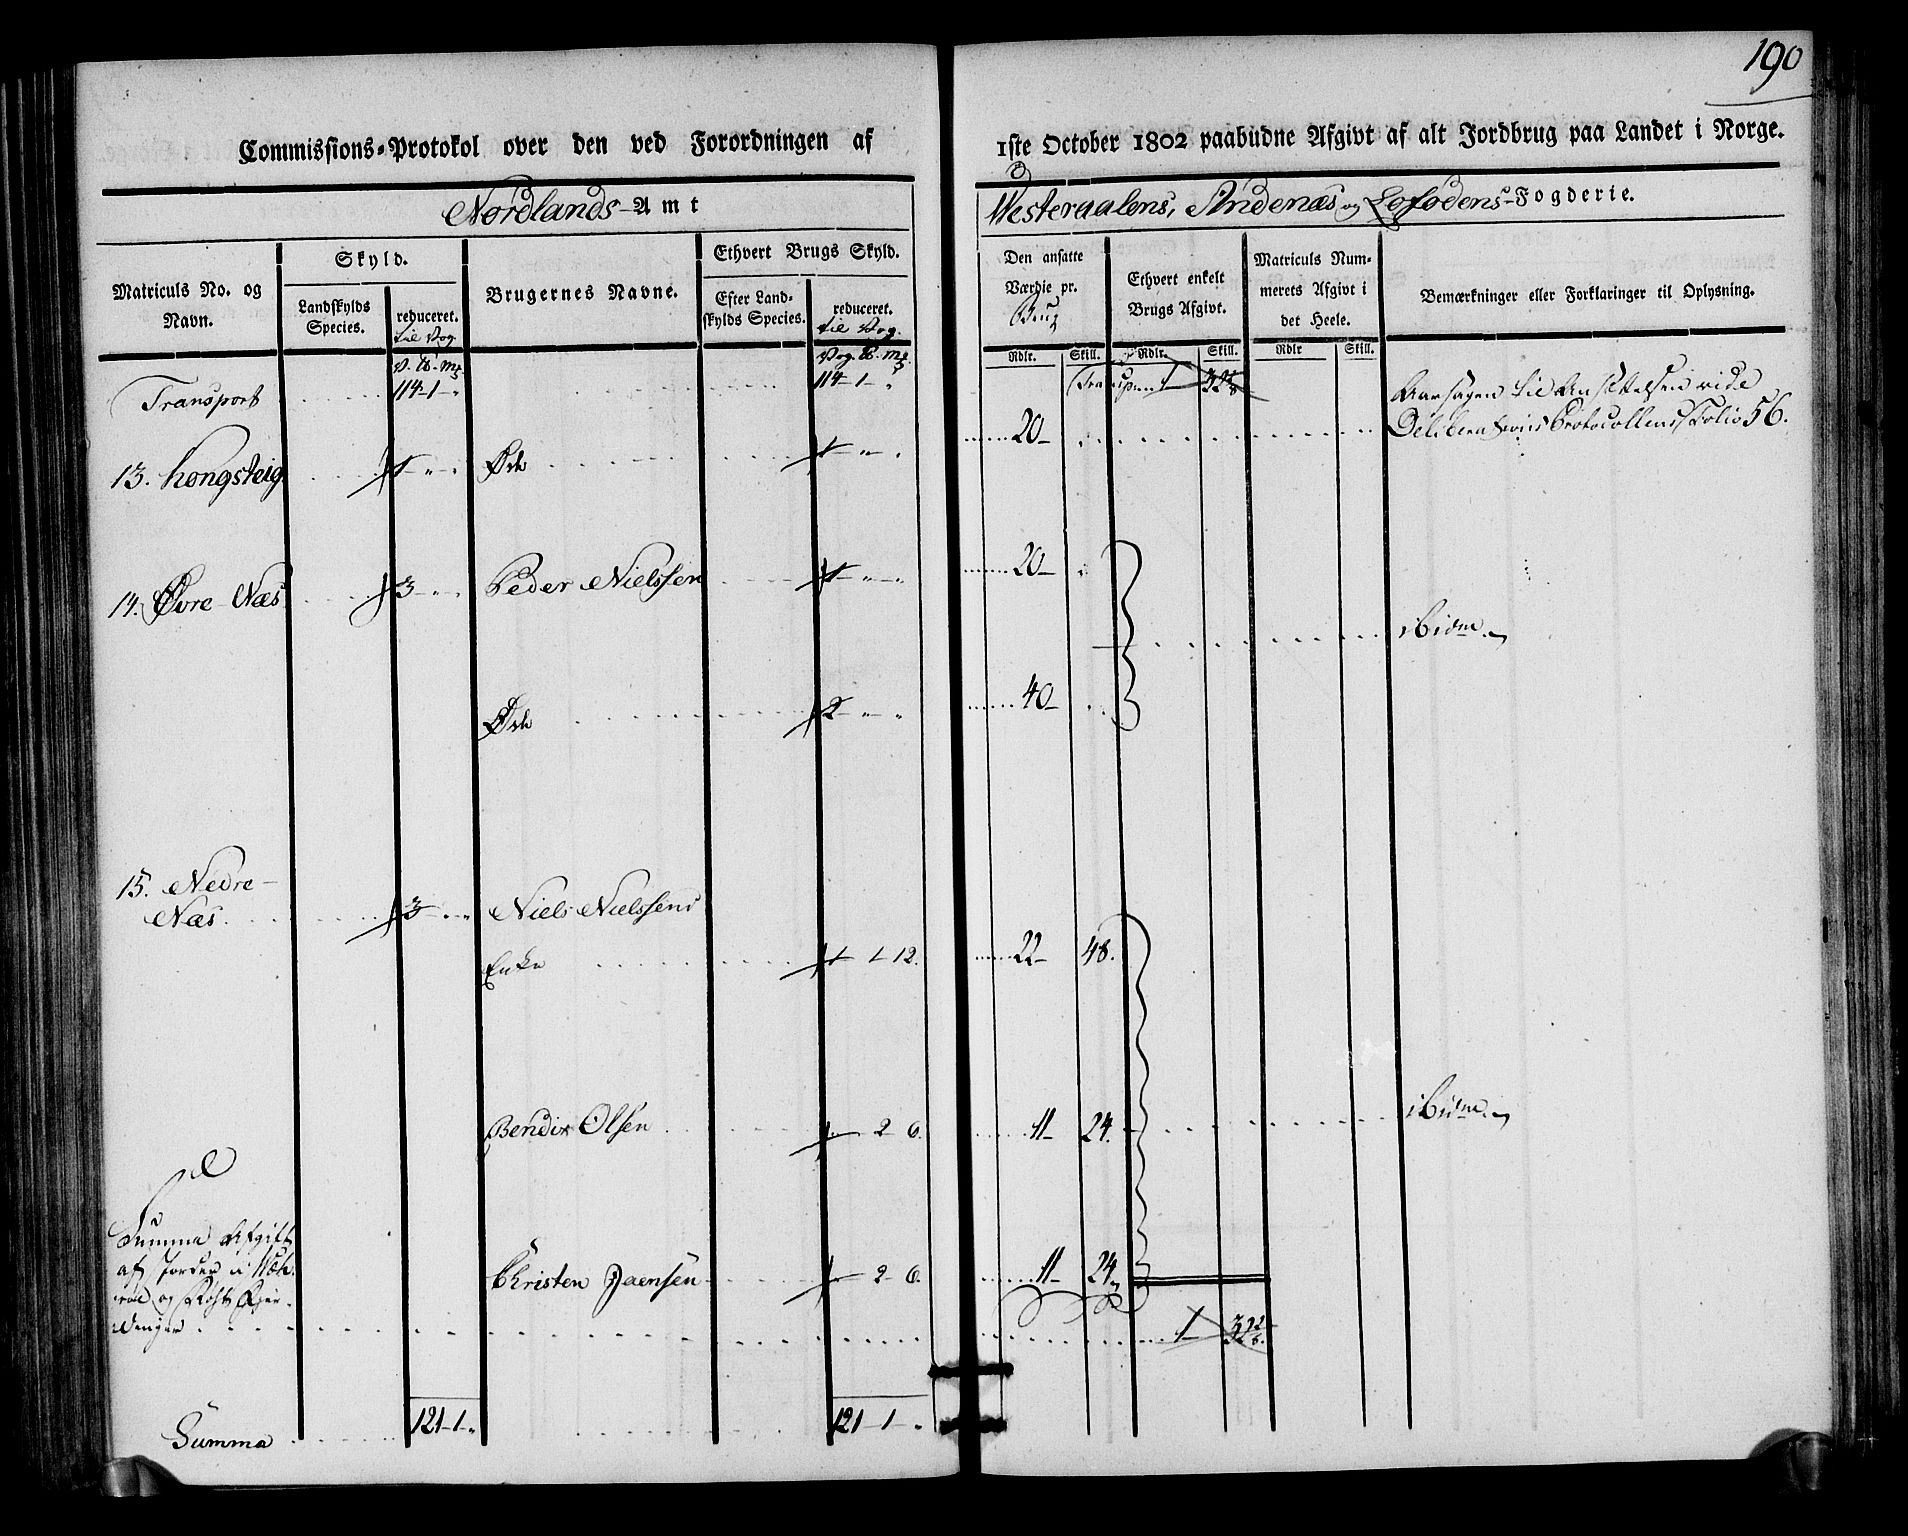 190
Commissions-Protokol over den ved Forordningen af 1ste October 1802 paabudne Afgivt af alt Jordbrug paa Landet i Norge.
Nordlands-Amt
Westeraalens, Andenæs og Lofodens-Fogderie.
Matriculs No. og Navn.
Skyld.
Landskylds Species.
reduceret. til Vog.
Brugernes Navne.
Ethvert Brugs Skyld.
Efter Landskylds Species.
reduceret. til Vog.
Den ansatte Værdie pr. Brug
Ethvert enkelt Brugs Afgivt.
Matriculs Nummerets Afgivt i det Heele.
Bemærkninger eller Forklaringer til Oplysning.
Rdlr. Skill. Rdlr. Skill. Rdlr Skill.
Transport 114-1-" 114-1-" Transport 1-
Aarsagen til Ansættelsen vide
Deliberations Protocollens Folio 56.
13. Hongsteig 1 " " Øde 1 " " 20-
14. Øvre Næs 3 " " Peder Nielssen 1 " " 20-
ibidm
Øde 2 " " 40-
15. Nedre-
Næs 3 " " Niels Nielssens
Enke 1 1 12. 22- 48.
Bendix Olsen 2 6. 11- 24. ibidm
Summa Afgift
af Jorder i
og Røst
Christen Jaensen 2 6. 11- 24
1-
Summa 121-1-" 121-1-"